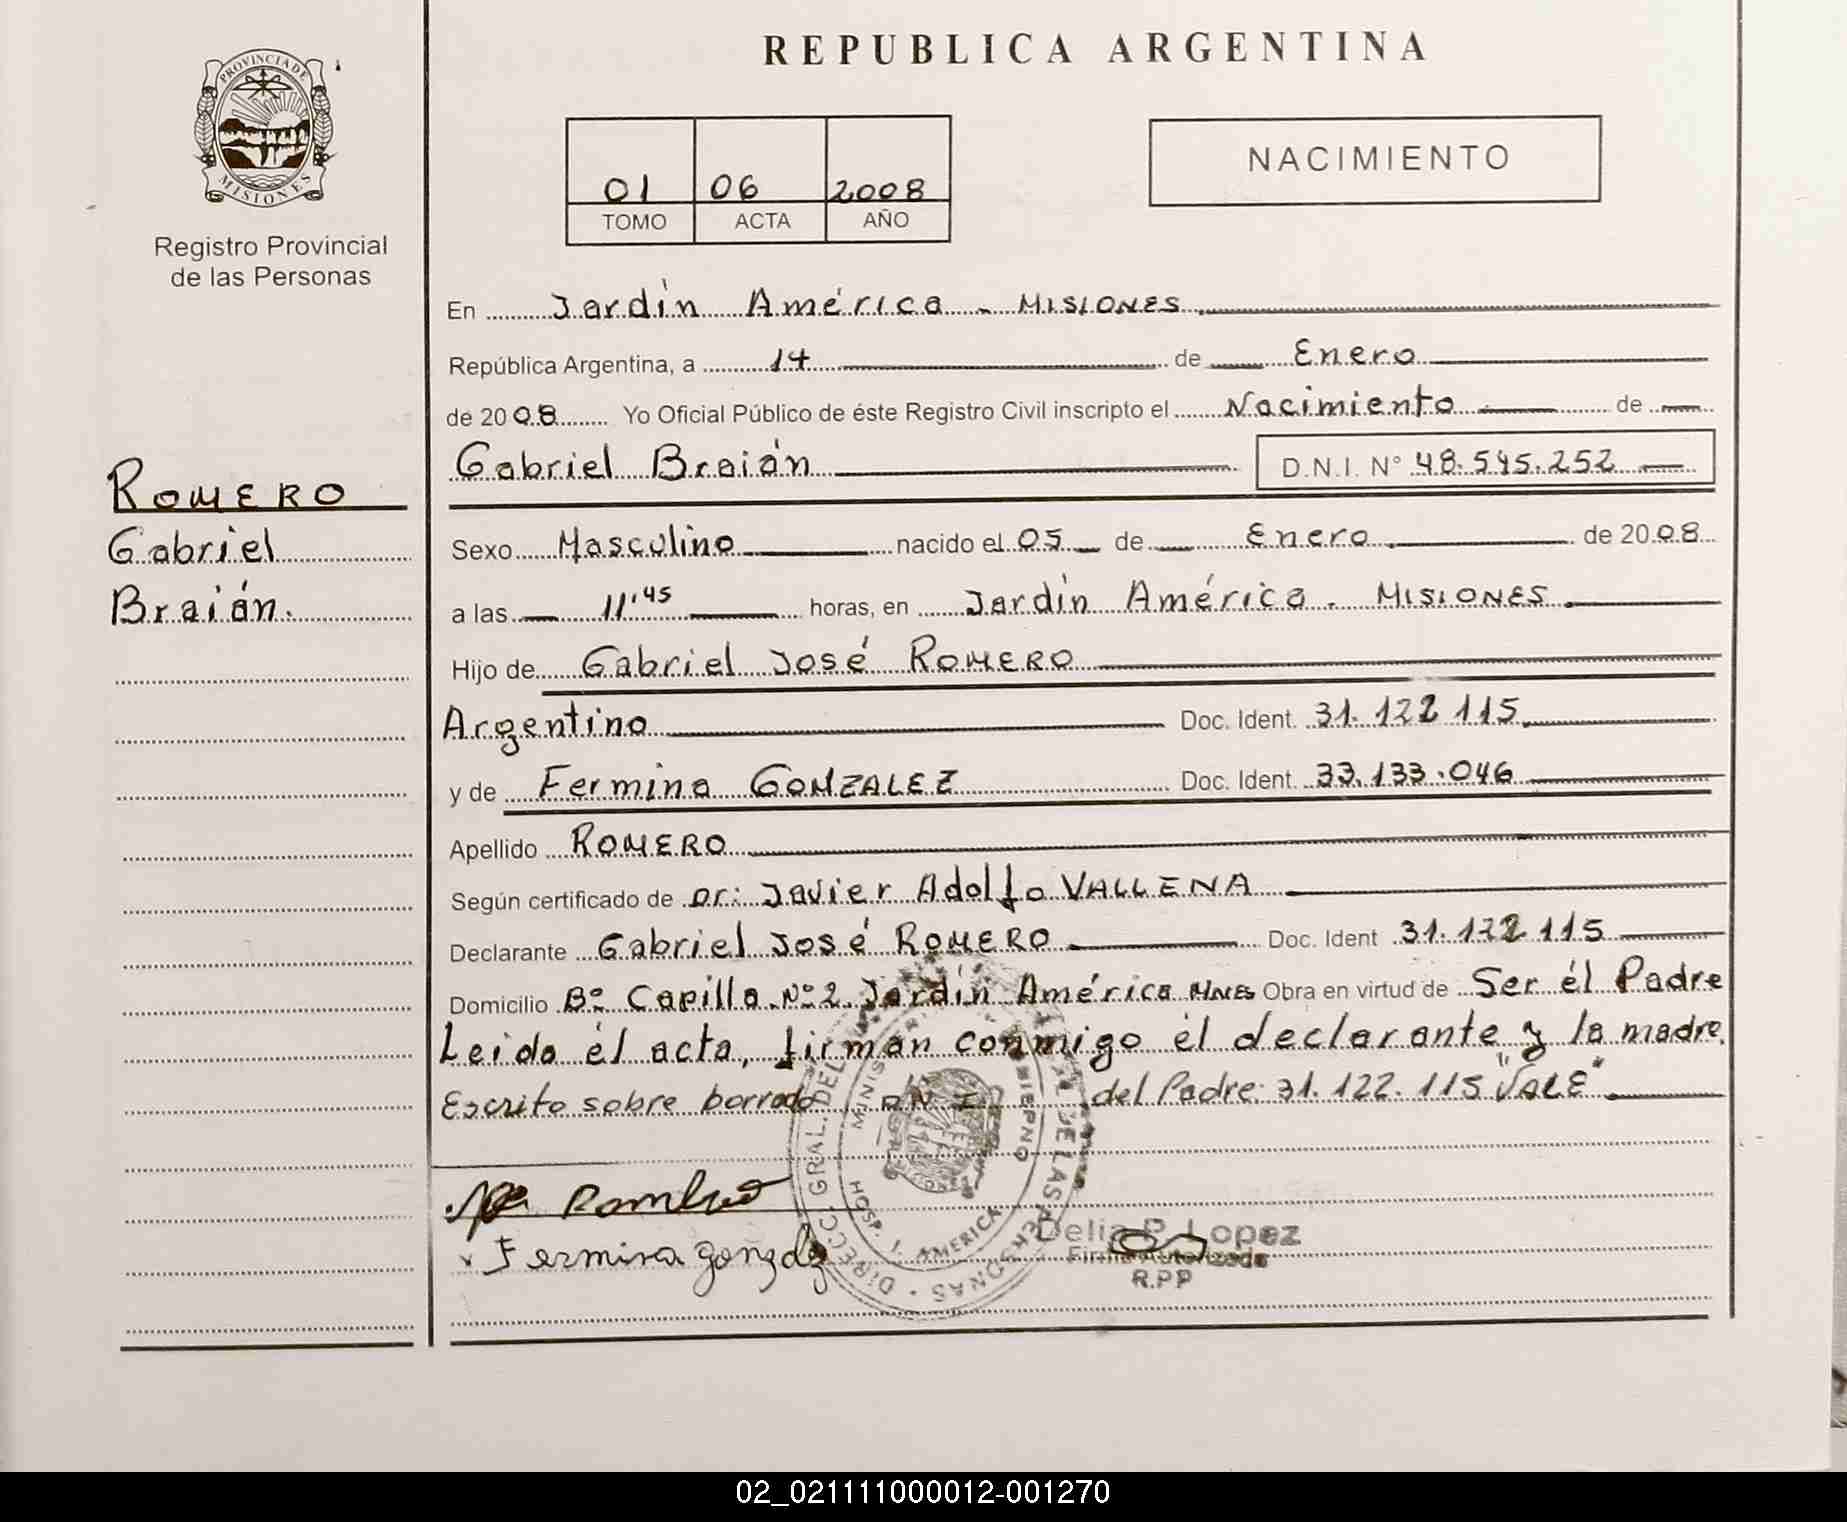 REPUBLICA ARGENTINA
PROVINCIA DE
MISIONES
Registro Provincial
de las Personas
01 06 2008
TOMO ACTA AÑO
NACIMIENTO
En Jardín América - MISIONES
República Argentina, a 14 de Enero
de 2008 Yo Oficial Público de éste Registro Civil inscripto el Nacimiento de
Gabriel Braián D.N.I. N° 48.545.252
ROMERO
Gabriel
Braián.
Sexo Masculino nacido el 05 de Enero de 2008
a las 11'45 horas, en Jardín América - MISIONES
Hijo de Gabriel José ROMERO
Argentino Doc. Ident. 31.122.115
y de Fermina GONZALEZ Doc. Ident. 33.133.046
Apellido ROMERO
Según certificado de Dr: Javier Adolfo VALLENA
Declarante Gabriel José ROMERO Doc. Ident 31.122.115
Domicilio B° Capilla N° 2 Jardín América Mnes Obra en virtud de Ser él Padre
Leida el acta, firman conmigo el declarante y la madre.
Escrito sobre borrado D.N.I. del Padre: 31.122.115 "VALE"
DIRECC. GRAL. DEL DE LAS PERSONAS
HOSP. J. AMERICA
MISIONES
Fermina Gonzalez
Delia B. Lopez
Firma Autorizada
R.P.P
02_021111000012-001270